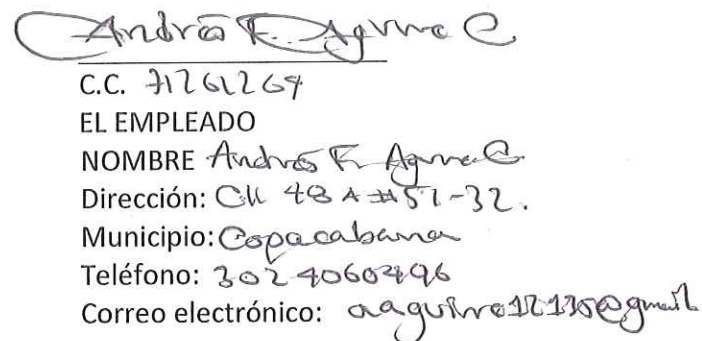 Andrés F. Aguirre C
C.C. 71261264
EL EMPLEADO
NOMBRE Andrés F. Aguirre C.
Dirección: Cll 48 A #51-32.
Municipio: Copacabana
Teléfono: 302 4060496
Correo electrónico: aaguirre12135@gmail